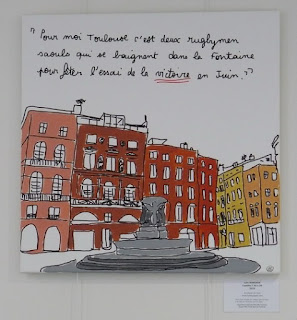 "Pour moi Toulouse c'est deux rugbymen
saouls qui se baignent dans la Fontaine
pour fêter l'essai de la victoire en Juin."